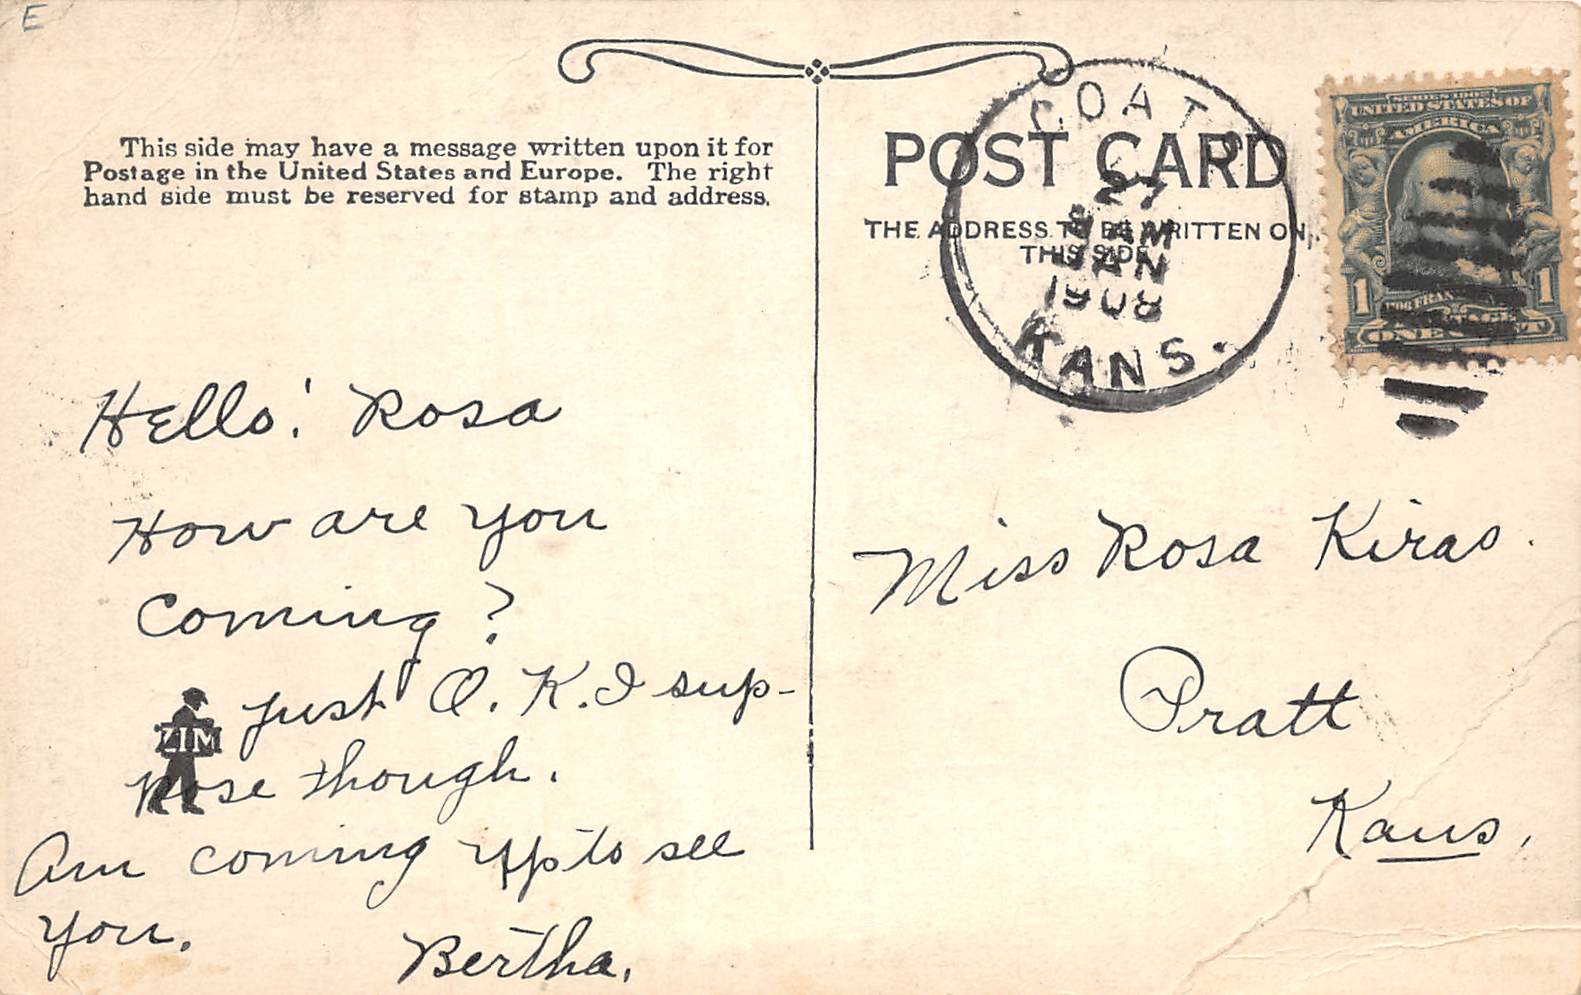 E
This side may have a message written upon it for
Postage in the United States and Europe. The right
hand side must be reserved for stamp and address.
POST CARD
THE ADDRESS TO BE WRITTEN ON
THIS SIDE
COATS
27
8 AM
JAN
1908
KANS.
SERIES 1902
UNITED STATES OF
AMERICA
1 1706 FRAN 1
POSTAGE
ONE CENT
Hello! Rosa
How are you
coming?
just O.K. I sup-
pose though.
Am coming up to see
you.
Bertha.
ZIM
Miss Rosa Kiras.
Pratt
Kans.